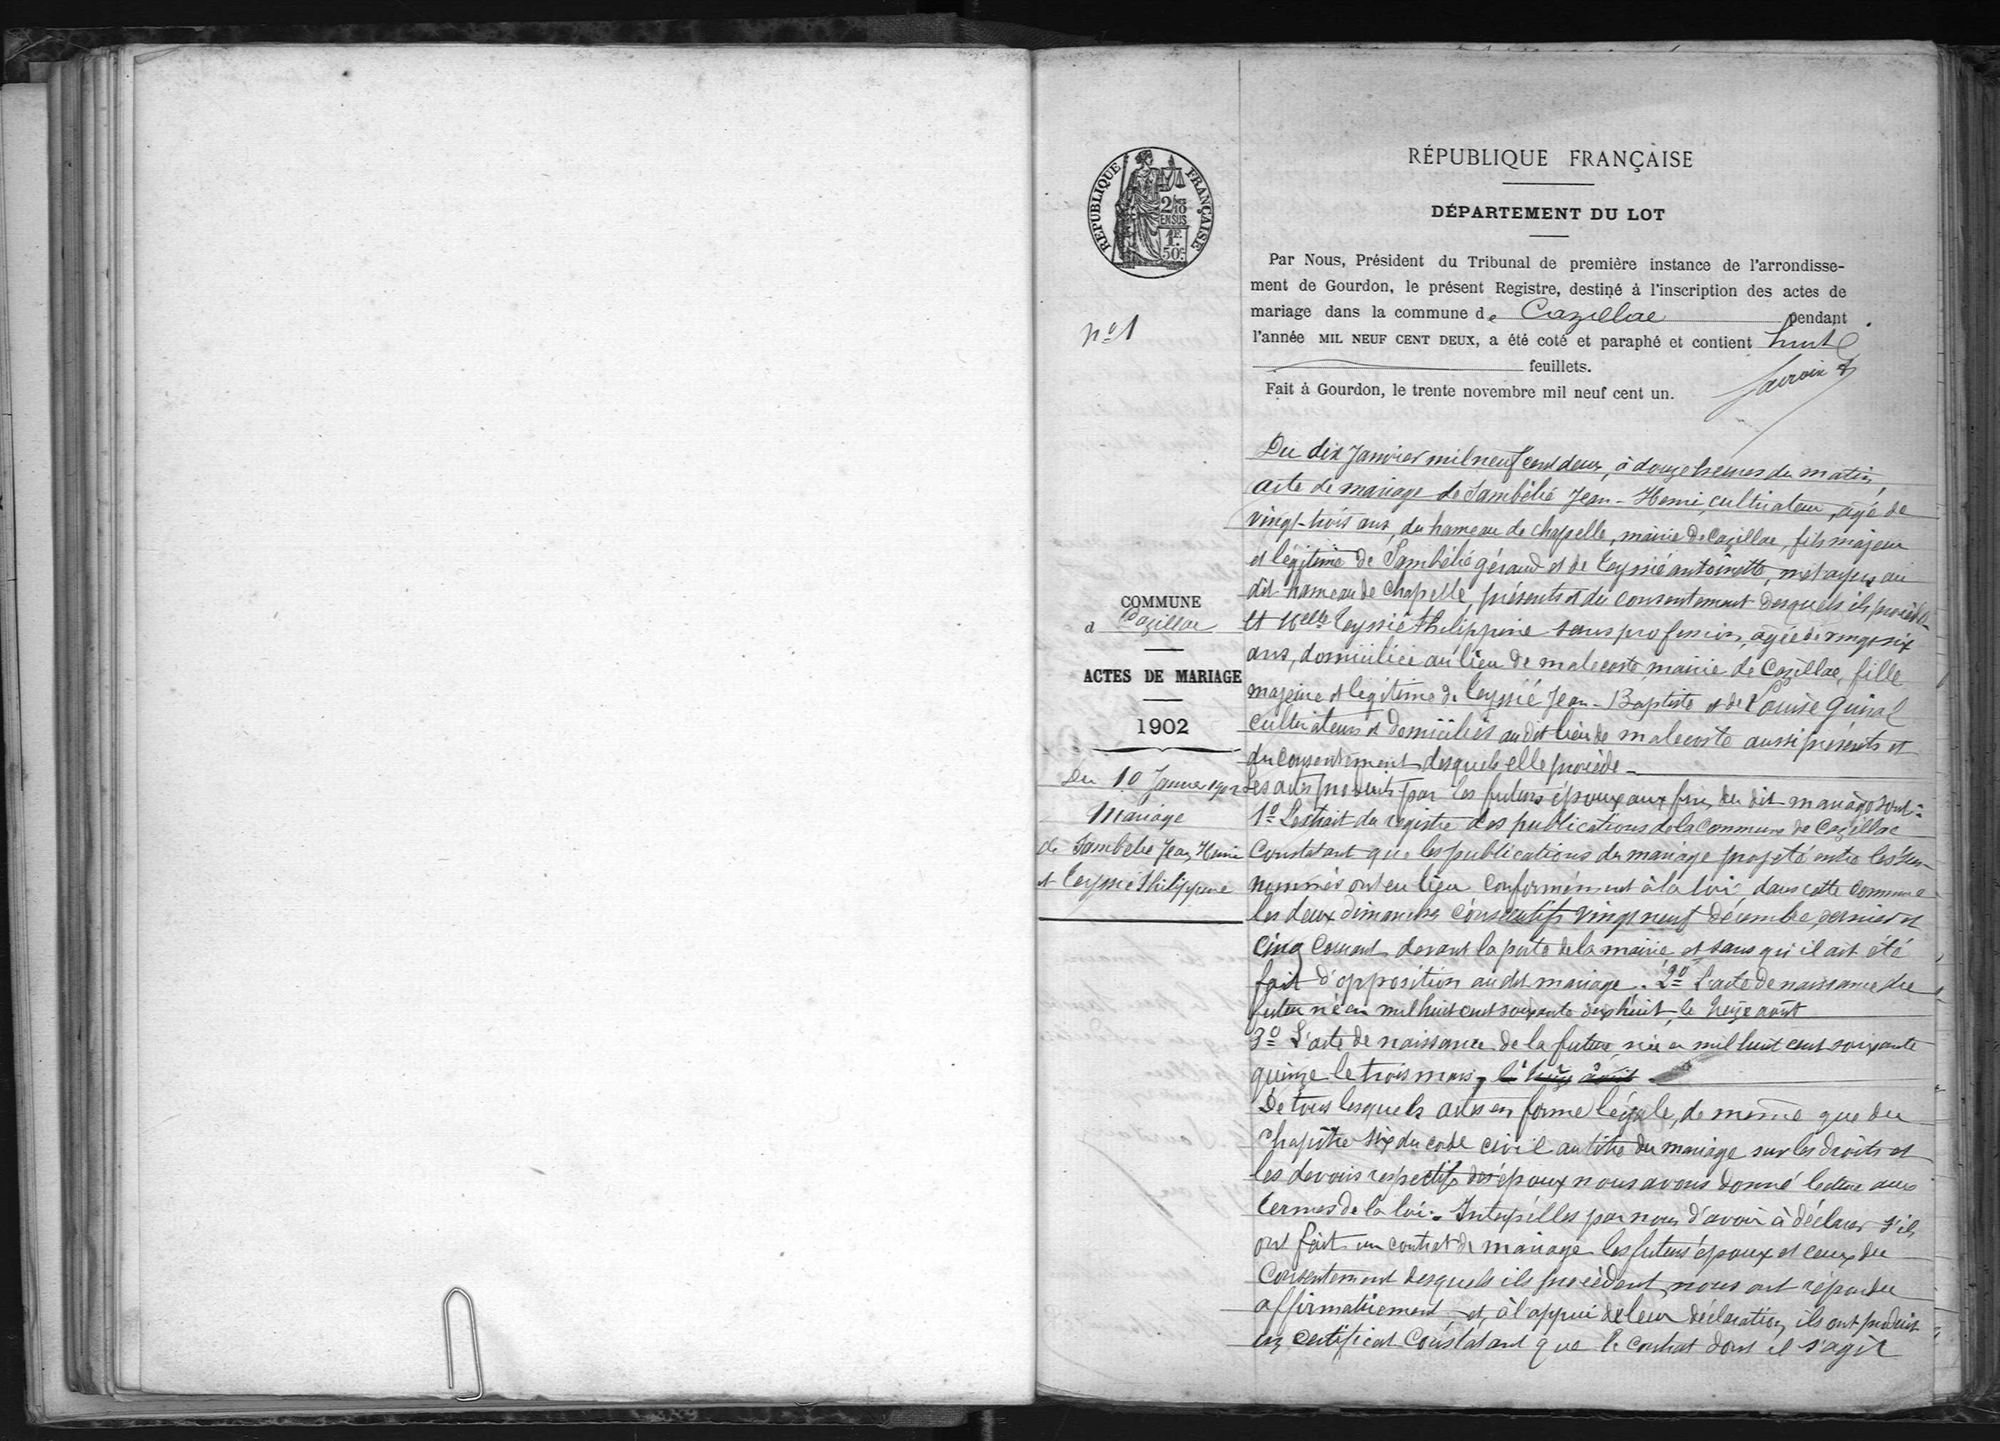 RÉPUBLIQUE FRANÇAISE
DÉPARTEMENT DU LOT
RÉPUBLIQUE FRANÇAISE
2/10
EN SUS
1F
50c
Par Nous, Président du Tribunal de première instance de l'arrondisse-
ment de Gourdon, le présent Registre, destiné à l'inscription des actes de
mariage dans la commune de Cazillac pendant
l'année MIL NEUF CENT DEUX, a été coté et paraphé et contient huit
feuillets.
Fait à Gourdon, le trente novembre mil neuf cent un.
No 1
COMMUNE
d Cazillac
ACTES DE MARIAGE
1902
Du 10 Janvier 1902
Mariage
de Sambélié Jean Henri
et Leyssié Philippine
Du dix Janvier mil neuf cent deux, à douze heures du matin,
acte de mariage de Sambélié Jean-Henri, cultivateur, âgé de
vingt-trois ans, du hameau de chapelle, mairie de Cazillac, fils majeur
et légitime de Sambélié géraud et de Leyssié antoinette, métayers au
dit hameau de chapelle, présents et du consentement desquels ils procède
Et Melle Leyssié Philippine sans profession, agée de vingt six
ans, domiciliée au lieu de malecoste, mairie de Cazillac, fille
majeure et légitime de Leyssié Jean-Baptiste et de Louise
cultivateurs et domiciliés au dit lieu de malecoste aussi présents et
du consentement desquels elle procède
Les actes produits par les futurs époux aux fins du dit mariage sont:
1o L'extrait du registre des publications de la Commune de Cazillac
Constatant que les publications du mariage projeté entre les sus
nommés ont eu lieu conformément à la loi dans cette commune
les deux dimanches consécutifs vingt neuf décembre, dernier et
Cinq Courant devant la porte de la mairie et sans qu'il ait été
fait d'opposition au dit mariage. 2o L'acte de naissance du
futur né en mil huit cent soixante dix huit, le treize août
3o L'acte de naissance de la future née en mil huit cent soixante
quinze le trois mars, le treize août
De tous lesquels actes en forme légale, de même que du
Chapitre six du code civil au titre du mariage sur les droits et
les devoirs respectifs des époux nous avons donné lecture aux
termes de la loi. Interpellés par nous d'avoir à déclarer s'ils
ont fait un contrat de mariage les futurs époux et ceux du
Consentement desquels ils procèdent, nous ont répondu
affirmativement et, à l'appui de leur déclaration, ils ont produit
un certificat Constatant que le contrat dont il s'agit